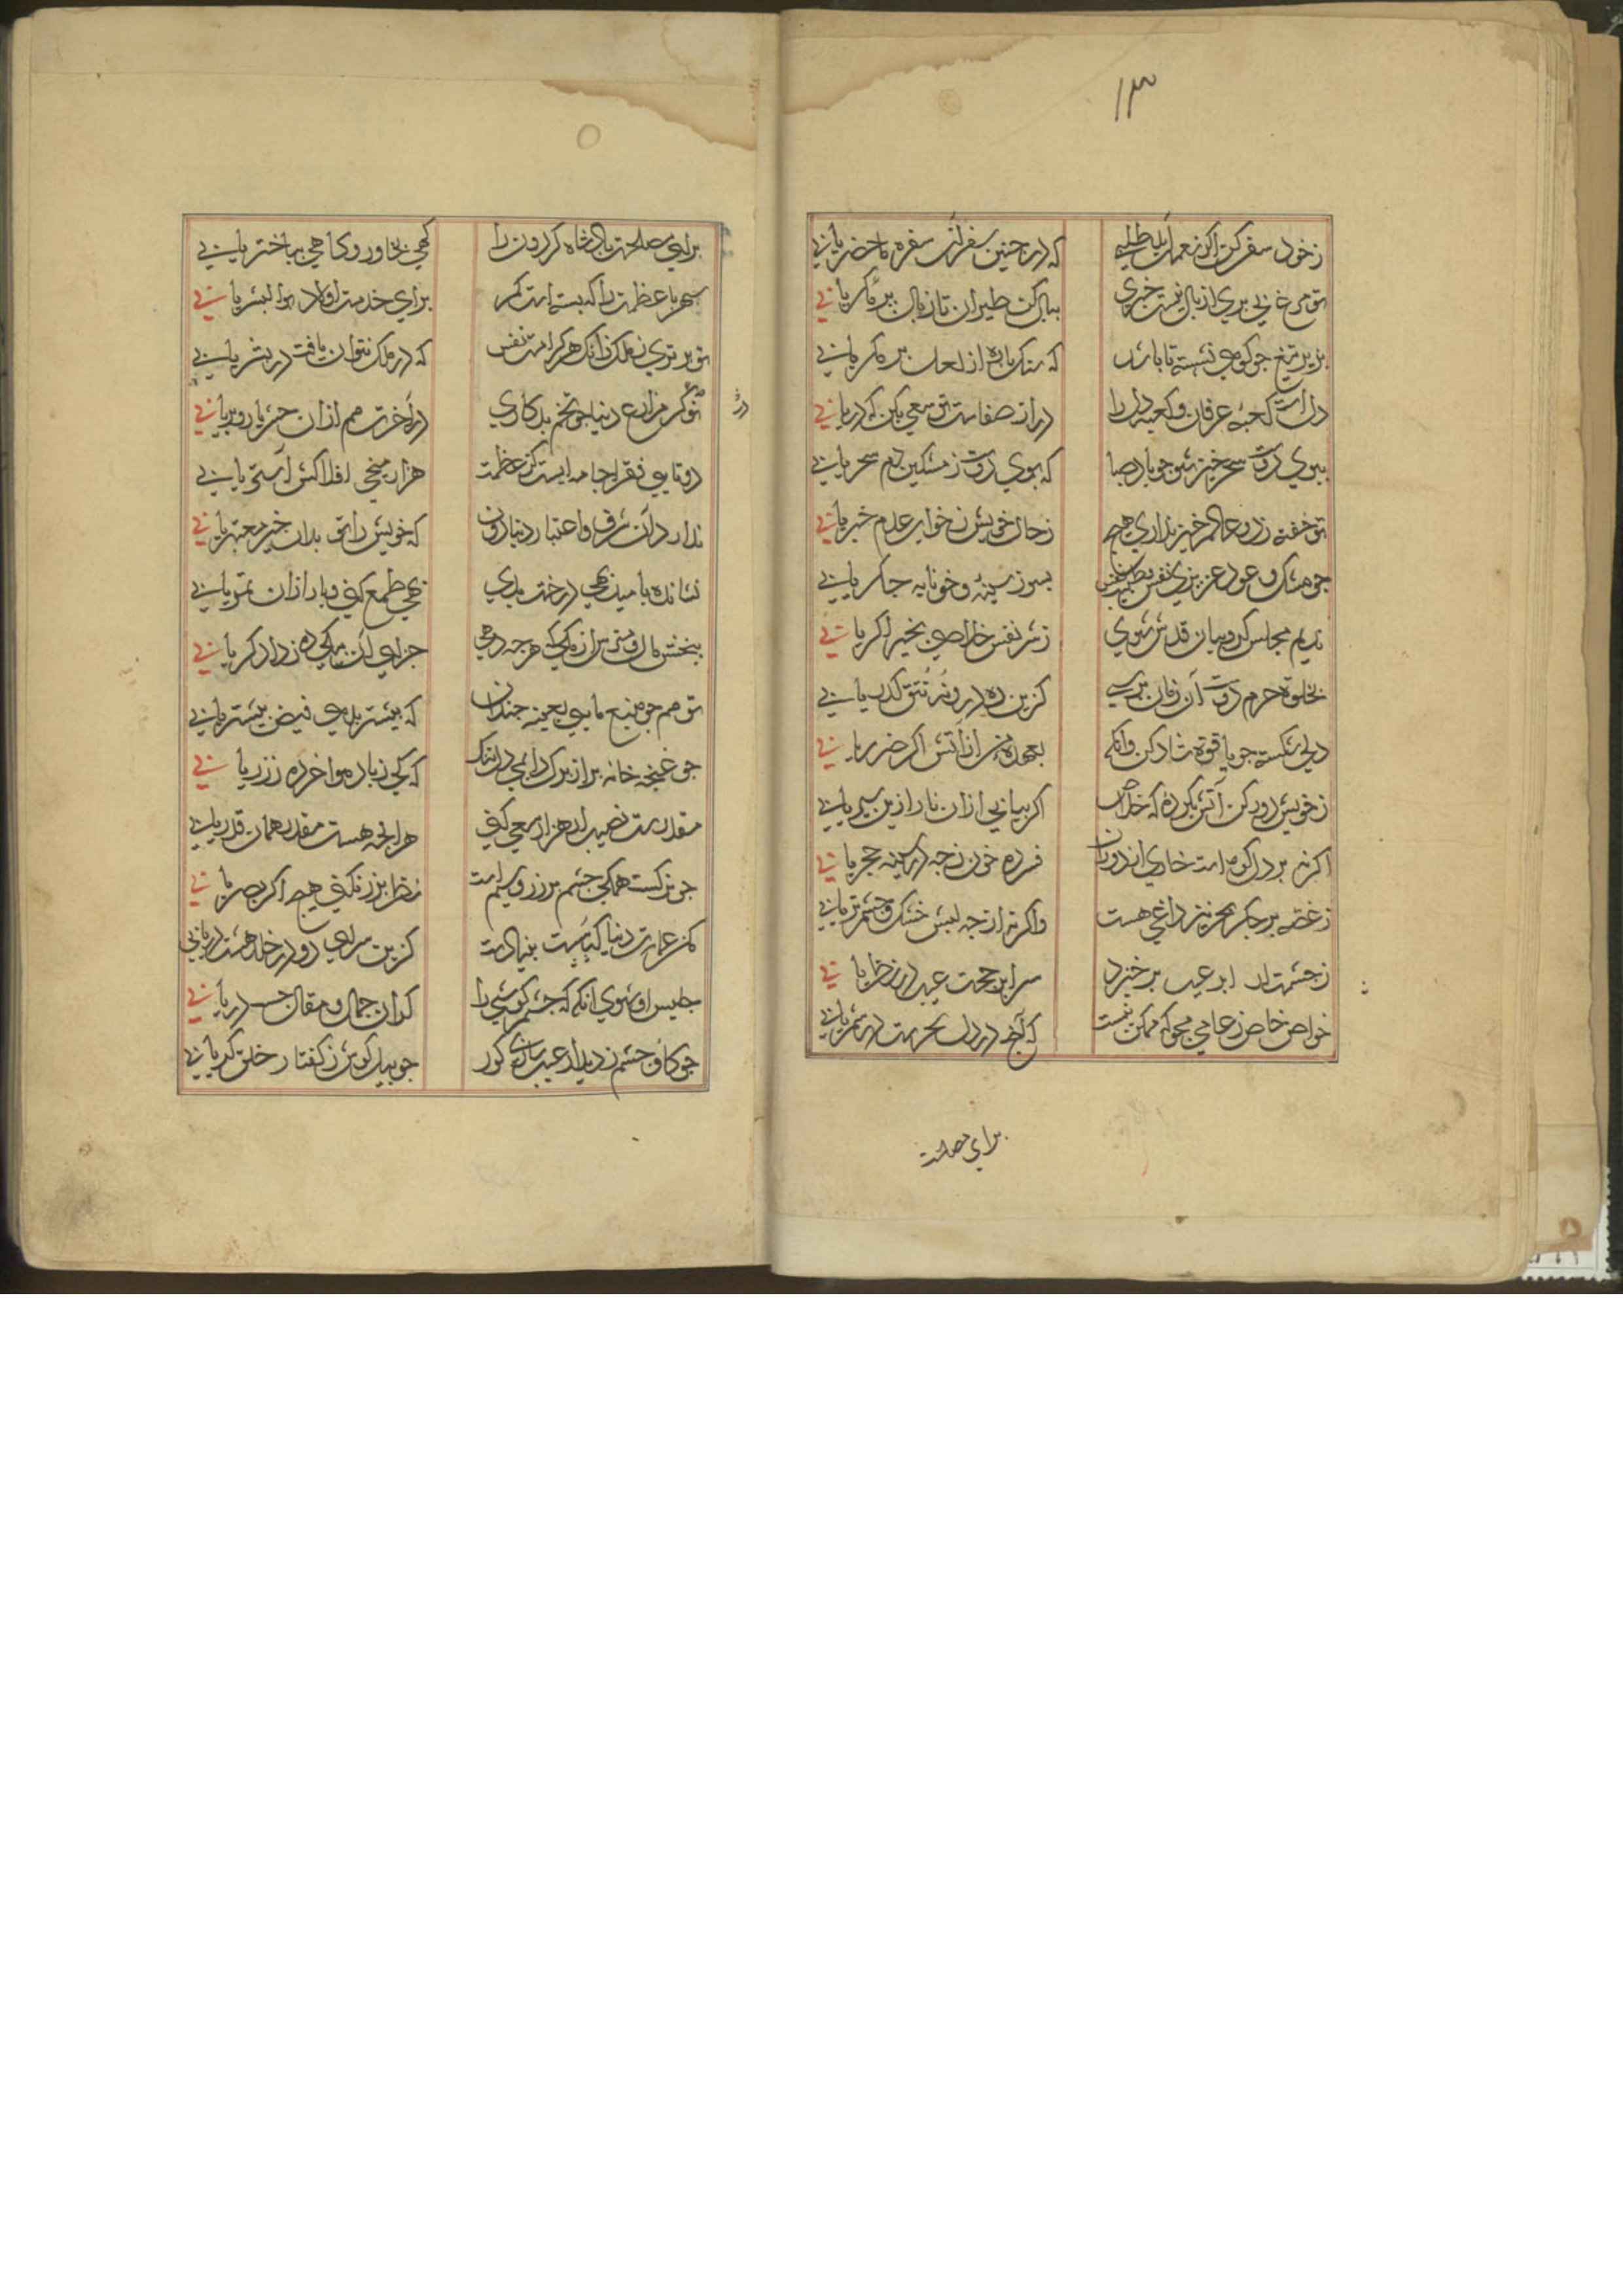 ۱۳
زخود سفر کن اکر نعمت ابد طلبی که در چنین سفر از سفره ماحضر یابی
تو مرغ غیبی بری از بال نیست خبری ببال کن طیران تا زبال بر یابی
بزیر تیغ چو کوهی نشسته تا باشد که سنک پاره از لعل بر کمر یابی
دل است کعبه عرفان و کعبه دل را در از صفاست تو سعی بکن که در یابی
ببوی دوست سحر خیز شو چو باد صبا که بوی دوست ز مشکین دم سحر یابی
تو خفته عالم خبر نداری هیچ زحال خویش ز خواب عدم خبر یابی
چو مشک و عود عزیزی نفس بسوز سینه و خونابه جکر یابی
ندیم مجلس کروبیان قدس شوی ز شر نفس خلاصی بخیر اکر یابی
بخلوة حرم دوست آن زمان برسی کزین ده در و نه تتق کذر یابی
دلی شکسته چو یاقوة شاد کن وانکه بعهده من از آتش اکر ضرر یابی
زخویش دور کن آتش اکر بیابی ازان نار ازین سیر یابی
اکر نه بر دل کوه است خاری اندوهان فسرده خون زچه در سینه حجر یابی
زغصه بر جکر بحر نیز داغی هست واکر نه از چه لبش خشک و چشم تر یابی
ز چشمت ار ابر عیب بر خیزد سرا بر حجت عیب در نظر یابی
خواص خاص ز عامی مجو که ممکن نیست که آنچه در دل بحرست در شمر یابی
برای مصلحت
برای مصلحت پادشاه کردون را کهی بخاور و کاهی بباختر یابی
سپهر با عظمت را که بسته است کمر برای خدمت اولاد بوالبشر یابی
تو برتری ز ملک زانک هر کرامت نفس که در ملک نتوان یافت در بشر یابی
تو کر مزارع دنیا چو تخم بد کاری در آخرت هم ازان
در
دو تایی فقرا جامه ایست کز عظمت هزار میخی افلاکش آستر یابی
ندارد آن شرف و اعتبار دنیا دون که خویش را تو بدان خیر معتبر یابی
نشانده بامید بهی درخت بدی زهی طمع کنی و بار ازان ثمر یابی
ببخش مال و مترس از کمی که هر چه دهی جزای آن بیکی ده ز دادکر یابی
تو هم چو منبع مایی بعینه چندان که بیشتر بدهی فیض بیشتر یابی
چو غنچه خانه بر از برک دایمی دل تنک که کی ز باد هوا خرده ز زر یابی
مقدرست نصیب ار هزار سعی کنی هر آنچه هست مقدر همان قدر یابی
چو نرکست همکی چشم بر زر و سیم است نظر بزر نکنی هیچ اکر بصر یابی
کز عمارت دنیا بنیادت کزین سرای دو در خلد هشت در یابی
جلیس او شوی انکه که چشم و کوشی را کزان جمال و مقال خسر در یابی
چو کاو چشم ز دیدار عیب سازی کور چو پیل کوش ز کفتار خلق کر یابی